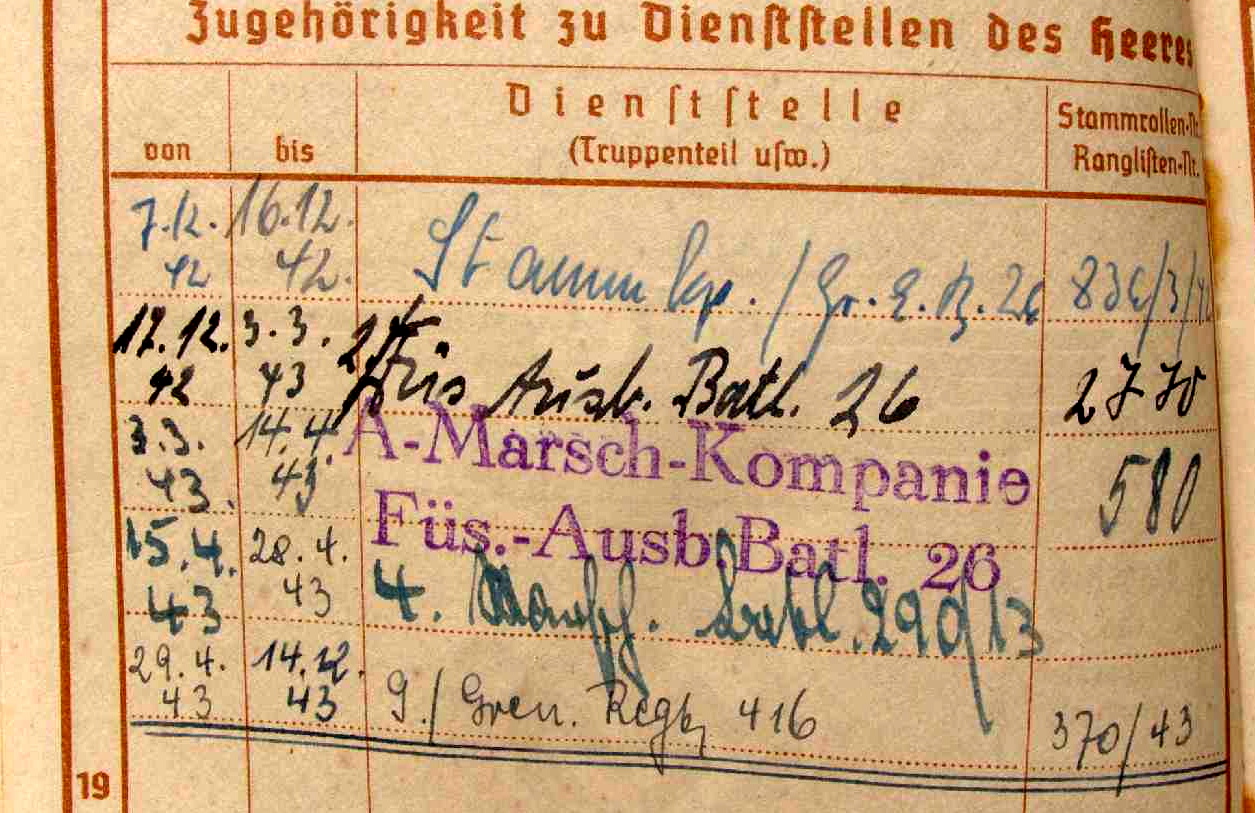 Zugehörigkeit zu Dienststellen des Heeres
von bis Dienststelle (Truppenteil usw.) Stammrollen-Nr. Ranglisten-Nr.
7.12. 42 16.12. 42. Stammkp. / Gr. E. B. 26
17.12. 42 3.3. 43 Füs Ausb. Batl. 26 2770
3.3. 43. 14.4. 43 A-Marsch-Kompanie 580
Füs.-Ausb. Batl. 26
15.4. 43 28.4. 43 4. Batl. 290/13
29.4. 43 14.12. 43 9./ Gren. Regt. 416 370/43
19